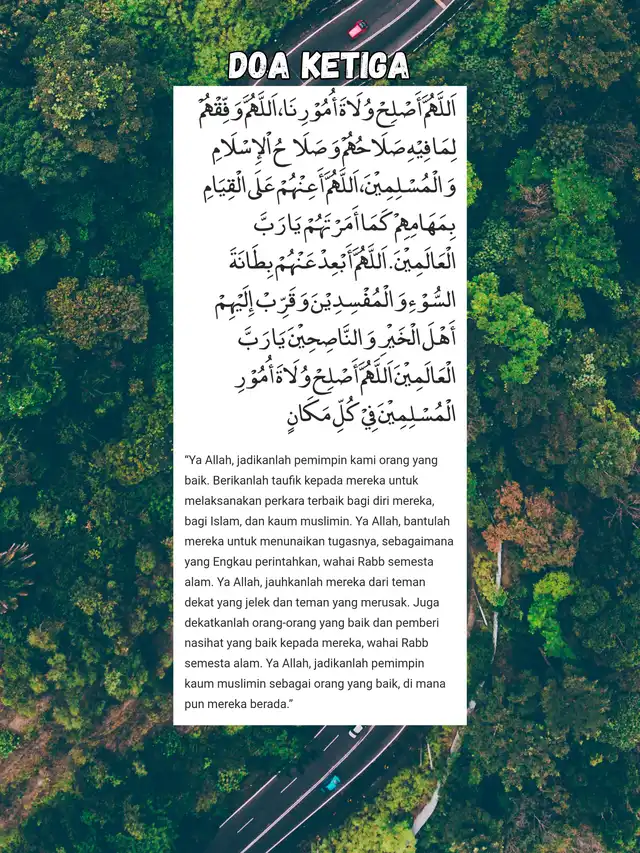 DOA KETIGA
اَللَّهُمَّ أَصْلِحْ وُلَاةَ أُمُوْرِنَا، اَللَّهُمَّ وَفِّقْهُمْ
لِمَا فِيْهِ صَلَاحُهُمْ وَصَلَاحُ الْإِسْلَامِ
وَالْمُسْلِمِيْنَ، اَللَّهُمَّ أَعِنْهُمْ عَلَى الْقِيَامِ
بِمَهَامِهِمْ كَمَا أَمَرْتَهُمْ يَا رَبَّ
الْعَالَمِيْنَ. اَللَّهُمَّ أَبْعِدْ عَنْهُمْ بِطَانَةَ
السُّوْءِ وَالْمُفْسِدِيْنَ وَقَرِّبْ إِلَيْهِمْ
أَهْلَ الْخَيْرِ وَالنَّاصِحِيْنَ يَا رَبَّ
الْعَالَمِيْنَ اَللَّهُمَّ أَصْلِحْ وُلَاةَ أُمُوْرِ
الْمُسْلِمِيْنَ فِيْ كُلِّ مَكَانٍ
“Ya Allah, jadikanlah pemimpin kami orang yang
baik. Berikanlah taufik kepada mereka untuk
melaksanakan perkara terbaik bagi diri mereka,
bagi Islam, dan kaum muslimin. Ya Allah, bantulah
mereka untuk menunaikan tugasnya, sebagaimana
yang Engkau perintahkan, wahai Rabb semesta
alam. Ya Allah, jauhkanlah mereka dari teman
dekat yang jelek dan teman yang merusak. Juga
dekatkanlah orang-orang yang baik dan pemberi
nasihat yang baik kepada mereka, wahai Rabb
semesta alam. Ya Allah, jadikanlah pemimpin
kaum muslimin sebagai orang yang baik, di mana
pun mereka berada.”